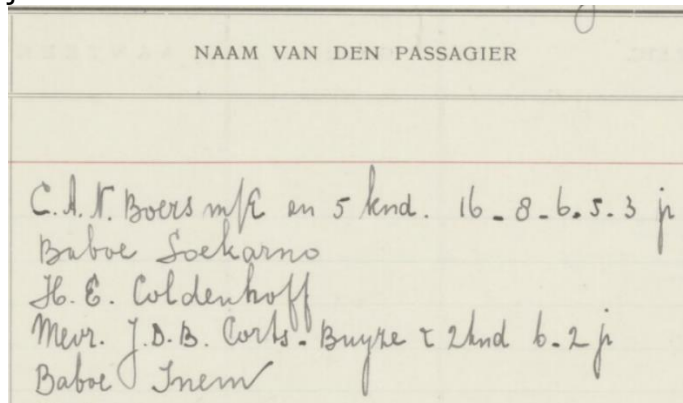 NAAM VAN DEN PASSAGIER
C.A.N. Boers m/E en 5 knd. 16-8-6.5-3 jr
Baboe Soekarno
H.E. Coldenhoff
Mevr. J.D.B. Corts-Buyze 2 knd 6-2 jr
Baboe Inem